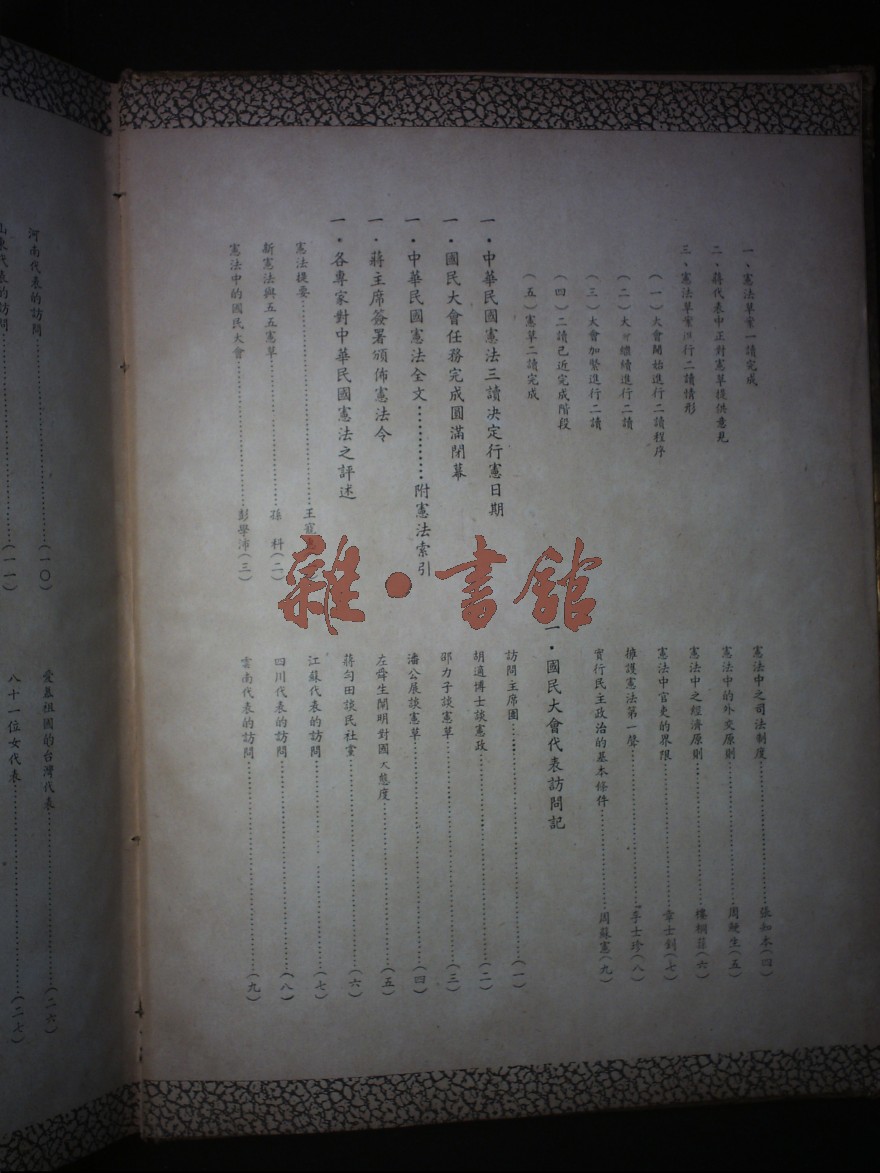 一、憲法草案一讀完成
二、蔣代表中正對憲草提供意見
三、憲法草案進行二讀情形
（一）大會開始進行二讀程序
（二）大會繼續進行二讀
（三）大會加緊進行二讀
（四）二讀已近完成階段
（五）憲草二讀完成
一・中華民國憲法三讀決定行憲日期
一・國民大會任務完成圓滿閉幕
一・中華民國憲法全文…………附憲法索引
一・蔣主席簽署頒佈憲法令
一・各專家對中華民國憲法之評述
憲法提要…………王寵
新憲法與五五憲草…………孫 科（二）
憲法中的國民大會…………彭學沛（三）
憲法中之司法制度…………張知本（四）
憲法中的外交原則…………周鯁生（五）
憲法中之經濟原則…………樓桐蓀（六）
憲法中官吏的界限…………章士釗（七）
擁護憲法第一聲…………李士珍（八）
實行民主政治的基本條件…………周蘇憲（九）
一・國民大會代表訪問記
訪問主席團…………（一）
胡適博士談憲政…………（二）
邵力子談憲草…………（三）
潘公展談憲草…………（四）
左舜生闡明對國大態度…………（五）
蔣勻田談民社黨…………（六）
江蘇代表的訪問…………（七）
四川代表的訪問…………（八）
雲南代表的訪問…………（九）
河南代表的訪問…………（一〇）
山東代表的訪問…………（一一）
愛慕祖國的台灣代表…………（二六）
八十一位女代表…………（二七）
雜・書館